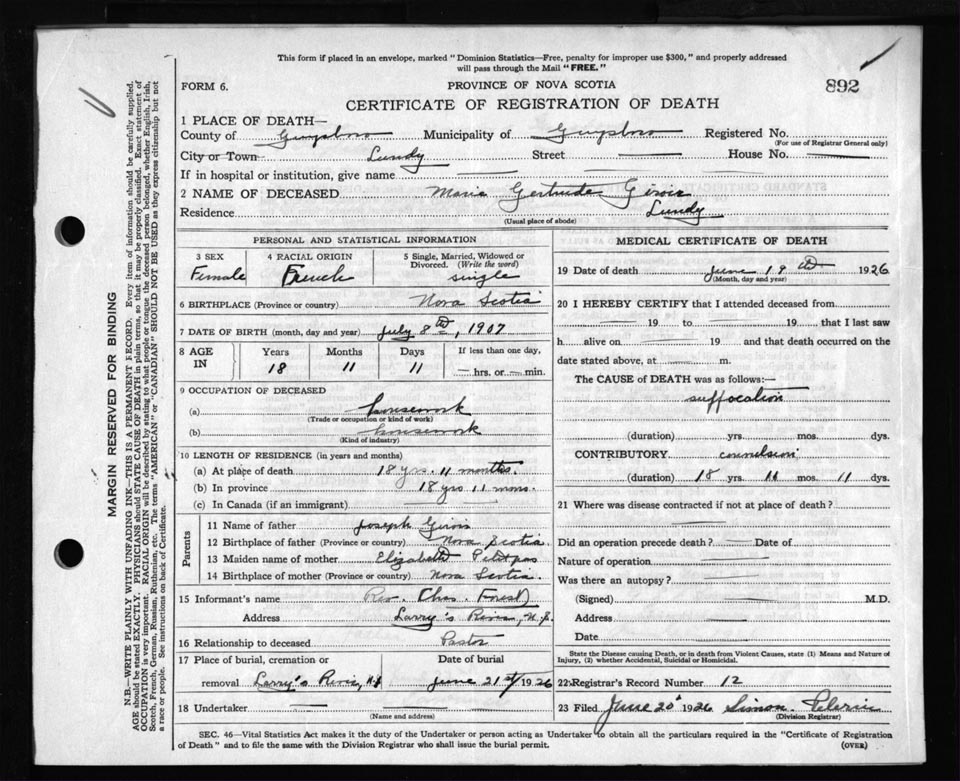 This form if placed in an envelope, marked "Dominion Statistics—Free, penalty for improper use $300," and properly addressed
will pass through the Mail "FREE."
FORM 6.
PROVINCE OF NOVA SCOTIA
892
CERTIFICATE OF REGISTRATION OF DEATH
1 PLACE OF DEATH—
County of Guysboro Municipality of Guysboro Registered No.
(For use of Registrar General only)
City or Town Lundy Street — House No. —
If in hospital or institution, give name —
2 NAME OF DECEASED Marie Gertrude Girois
Residence Lundy
(Usual place of abode)
PERSONAL AND STATISTICAL INFORMATION
3 SEX
Female
4 RACIAL ORIGIN
French
5 Single, Married, Widowed or
Divorced. (Write the word)
single
6 BIRTHPLACE (Province or country) Nova Scotia
7 DATE OF BIRTH (month, day and year) July 8th, 1907
8 AGE
IN
Years Months Days If less than one day,
18 11 11 — hrs. or — min.
9 OCCUPATION OF DECEASED
(a) housework
(Trade or occupation or kind of work)
(b) housework
(Kind of industry)
10 LENGTH OF RESIDENCE (in years and months)
(a) At place of death 18 yrs. 11 months.
(b) In province 18 yrs 11 mons.
(c) In Canada (if an immigrant)
Parents
11 Name of father Joseph Girois
12 Birthplace of father (Province or country) Nova Scotia
13 Maiden name of mother Elizabeth Petitpas
14 Birthplace of mother (Province or country) Nova Scotia.
15 Informant's name Rev. Chas. Forest
Address Larry's River, N.S.
16 Relationship to deceased Pastor
17 Place of burial, cremation or Date of burial
removal Larry's River, N.S June 21st 1926
18 Undertaker —
(Name and address)
MEDICAL CERTIFICATE OF DEATH
19 Date of death June 19th 1926
(Month, day and year)
20 I HEREBY CERTIFY that I attended deceased from
— 19 to — 19 , that I last saw
h alive on — 19 and that death occurred on the
date stated above, at — m.
The CAUSE OF DEATH was as follows:—
suffocation
(duration) yrs. mos. dys.
CONTRIBUTORY convulsion
(duration) 18 yrs. 11 mos. 11 dys.
21 Where was disease contracted if not at place of death?
—
Did an operation precede death? — Date of
Nature of operation —
Was there an autopsy? —
(Signed) — M.D.
Address —
Date
State the Disease causing Death, or in death from Violent Causes, state (1) Means and Nature of
Injury, (2) whether Accidental, Suicidal or Homicidal.
22 Registrar's Record Number 12
23 Filed June 20 1926 Simon Pelerin
(Division Registrar)
SEC. 46—Vital Statistics Act makes it the duty of the Undertaker or person acting as Undertaker to obtain all the particulars required in the "Certificate of Registration
of Death" and to file the same with the Division Registrar who shall issue the burial permit.
(OVER)
MARGIN RESERVED FOR BINDING
N.B.—WRITE PLAINLY WITH UNFADING INK—THIS IS A PERMANENT RECORD. Every item of information should be carefully supplied.
AGE should be stated EXACTLY. PHYSICIANS should STATE CAUSE OF DEATH in plain terms, so that it may be properly classified. Exact statement of
OCCUPATION is very important. RACIAL ORIGIN will be described by stating to what people or tongue the deceased person belonged, whether English, Irish,
Scotch, French, German, Russian, Ruthenian, etc. The terms "AMERICAN" or "CANADIAN" SHOULD NOT BE USED as they express citizenship but not
a race or people. See instructions on back of Certificate.